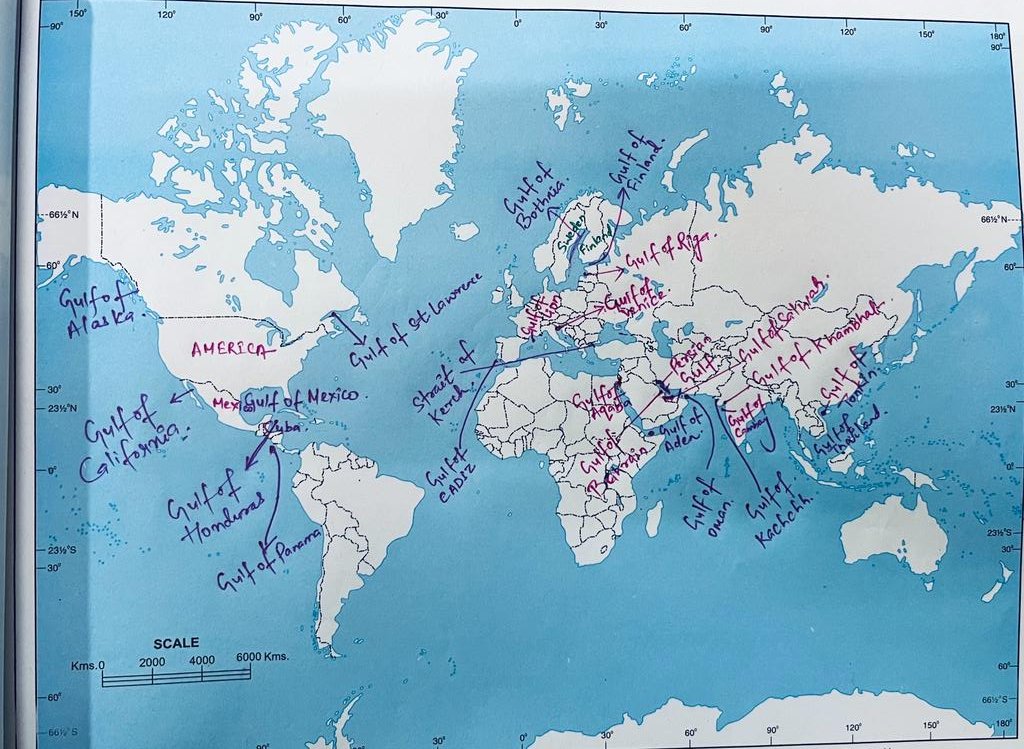 150° 120° 90° 60° 30° 0° 30° 60° 90° 120° 150° 180°
90° 90°
66½°N 66½°N
60° 60°
30° 30°
23½°N 23½°N
0° 0°
23½°S 23½°S
30° 30°
60° 60°
66½°S 66½°S
90° 30° 0° 30° 60° 90° 120° 150° 180°
Gulf of
Alaska.
AMERICA
Mexico
Gulf of Mexico.
Cuba.
Gulf of
California.
Gulf of
Honduras
Gulf of Panama
Gulf of St. Lawrence
Strait of
Kerch.
Gulf of
CADIZ
Gulf of
Bothnia.
Gulf of
Finland.
Sweden
Finland
Gulf of Riga.
Gulf of
Venice
Gulf of
Lion
Persian
Gulf
Gulf of Salwah.
Gulf of Khambhat.
Gulf of
Aqaba
Gulf of
Bahrain
Gulf of
Aden
Gulf of
Oman.
Gulf of
Cambay
Gulf of
Kachchh.
Gulf of
Tonkin.
Gulf of
Thailand.
SCALE
Kms. 0 2000 4000 6000 Kms.